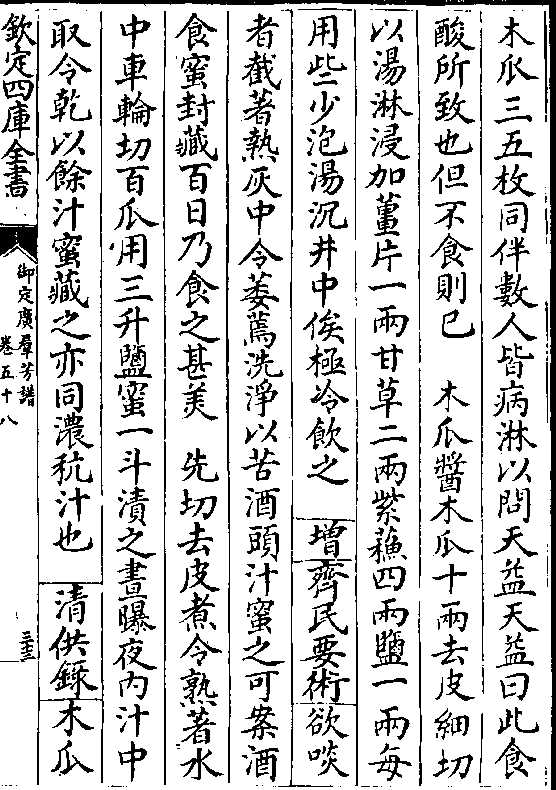 木瓜三五枚同伴數人皆病淋以問天益天益曰此食
酸所致也但不食則已　木瓜醬木瓜十兩去皮細切
以湯淋浸加薑片一兩甘草二兩紫蘓四兩鹽一兩每
用些少泡湯沉井中俟極冷飲之　增齊民要術欲啖
者截著熱灰中令萎蔫洗淨以苦酒頭汁蜜之可案酒
食蜜封藏百日乃食之甚美　先切去皮煮令熟著水
中車輪切百瓜用三升鹽蜜一斗漬之晝曝夜内汁中
取令乾以餘汁蜜藏之亦同濃秔汁也　清供錄木瓜
欽定四庫全書
御定廣羣芳譜
卷五十八
三三